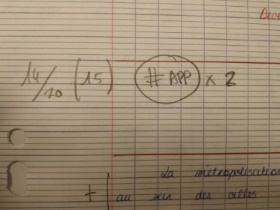 14/20 (15) #APP x 2
La métropolisation
+ ( au sein des villes